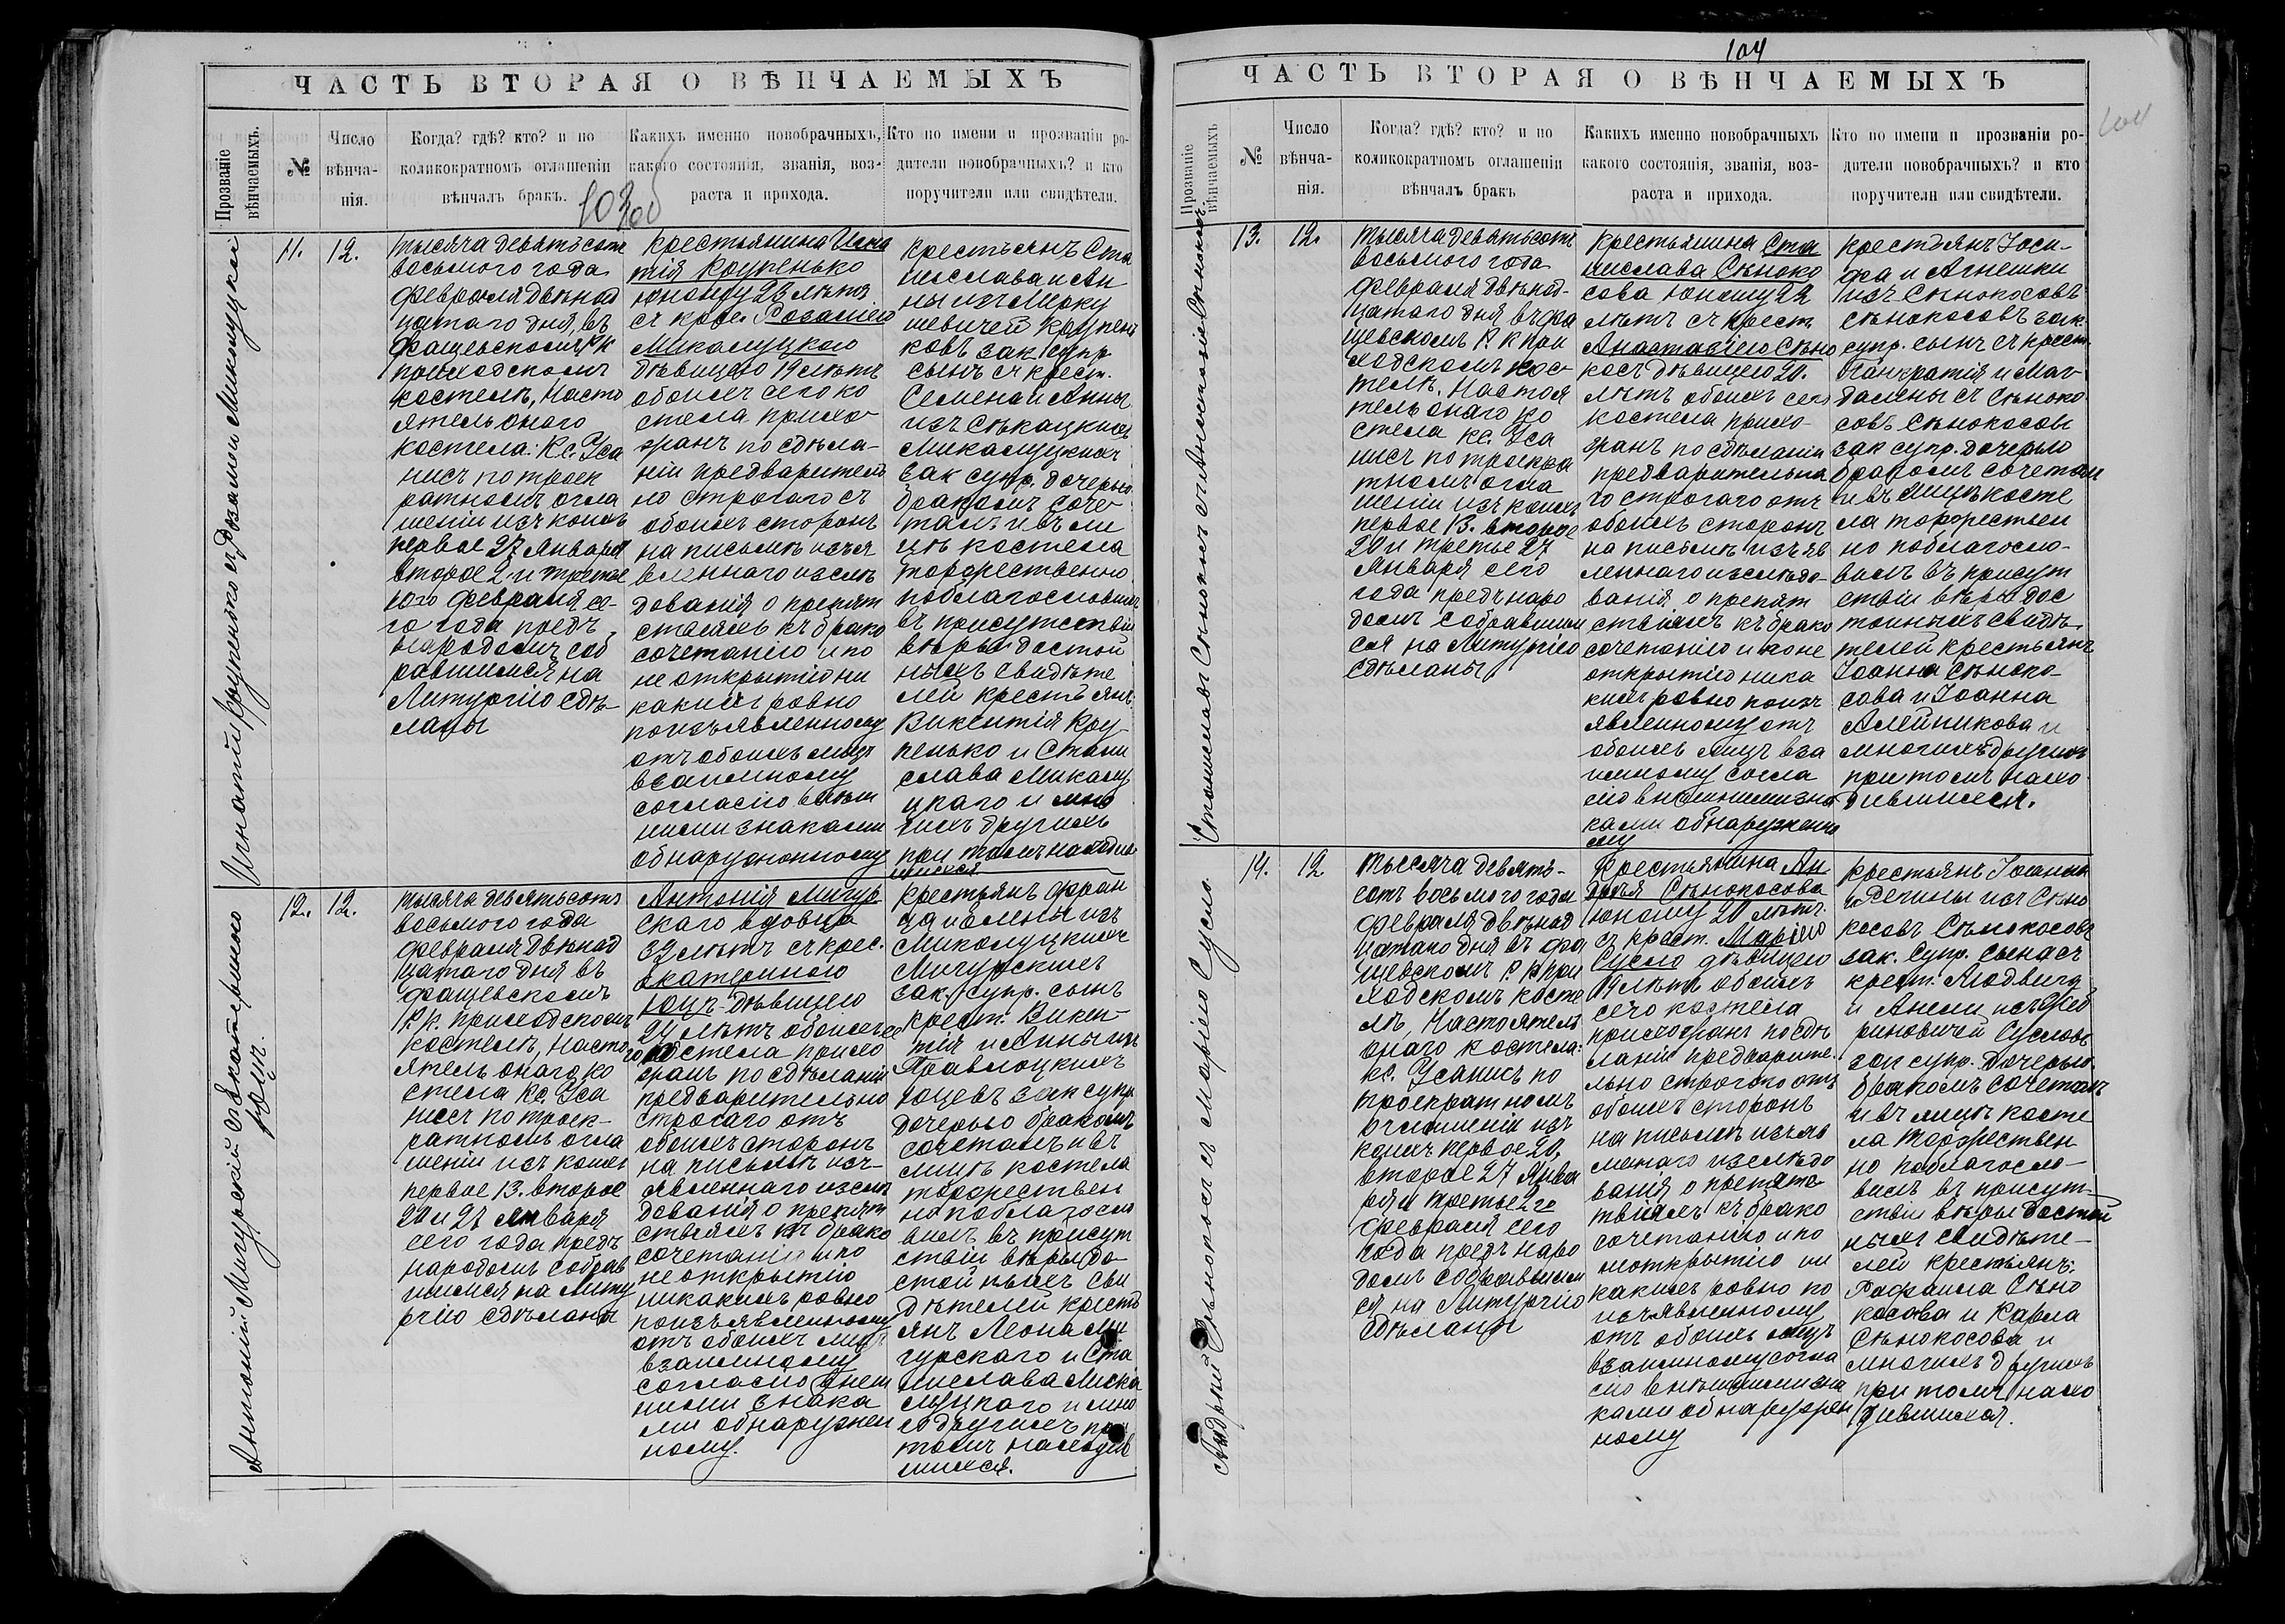 ЧАСТЬ ВТОРАЯ О ВѢНЧАЕМЫХЪ
Прозваніе вѣнчаемыхъ.
№
Число вѣнча-
нія.
Когда? гдѣ? кто? и по
коликократномъ оглашеніи
вѣнчалъ бракъ.
Какихъ именно новобрачныхъ,
какого состоянія, званія, воз-
раста и прихода.
Кто по имени и прозванію ро-
дители новобрачныхъ? и кто
поручители или свидѣтели.
103
Игнатій Крупенько съ Розалій Миколуцкой
11.
12.
Тысяча девятьсотъ
восьмого года
февраля двѣнад
цатаго дня, въ
Фащевскомъ Р К
приходскомъ
костелѣ, Насто
ятель онаго
костела: Кс. Уса
нисъ по троек
ратномъ огла
шеніи изъ коихъ
первое 27 Января
второе 2. и третье
10го февраля се-
го года предъ
народомъ соб
равшимся на
Литургію сдѣ-
ланы
Крестьянина Игна
тія Крупенько
юношу 23 лѣтъ
съ крес. Розалією
Микалуцкою
дѣвицею 19 лѣтъ
обоихъ сего ко
стела прихо
жанъ по сдѣла-
ніи предваритель
но строгаго съ
обоихъ сторонъ
на письмѣ изъя
вленнаго изслѣ
дованія о препят
ствіяхъ къ брако
сочетанію и по
не открытію ни
какихъ ровно
по изъявленному
отъ обоихъ лицъ
взаимному
согласію внѣш
ними знаками
обнаруженному
Крестьянъ Ста
нислава и Ан
ны изъ Мерку
шевичей Крупень
ковъ зак. супр
сынъ съ крест.
Семена и Анны
изъ Сѣкацкихъ
Микалуцкихъ
зак супр. дочерью
бракомъ соче
талъ и въ ли
цѣ костела
торжественно
поблагословилъ
въ присутствіи
вѣры достой
ныхъ свидѣте
лей крестьянъ
Викентія Кру
пенько и Стани
слава Микалу
цкаго и мно
гихъ другихъ
при томъ находив
шихся
Антоній Мигурскій съ Екатериною
Юцъ.
12.
12.
Тысяча девятьсотъ
восьмого года
февраля двѣнад
цатаго дня въ
Фащевскомъ
Р.К. приходскомъ
костелѣ, Насто
ятель онаго ко
стела Кс. Уса
нисъ по троек-
ратномъ огла
шеніи изъ коихъ
первое 13. второе
20 и 27 Января
сего года предъ
народомъ собрав
шимся на Литу
ргію сдѣланы
Антонія Мигур
скаго вдовца
32 лѣтъ съ крес.
Екатериною
Юцъ дѣвицею
24 лѣтъ обоихъ се
го костела прихо
жанъ по сдѣланіи
предварительно
строгаго отъ
обоихъ сторонъ
на письмѣ изъ-
явленнаго изслѣ
дованія о препят
ствіяхъ къ брако
сочетанію и по
не открытію
никакихъ ровно
по изъявленному
отъ обоихъ лицъ
взаимному
согласію внеш
ними знака
ми обнаружен
ному.
Крестьянъ Фран
ца и Елены изъ
Миколуцкихъ
Мигурскихъ
зак. супр. сынъ
Крест. Викен-
тія и Анны изъ
Правлоцкихъ
Юцевъ зак супр
дочерью бракомъ
сочеталъ и въ
лицѣ костела
торжествен
но поблагосло
вилъ въ присут
ствіи вѣры до-
стойныхъ сви
дѣтелей кресть
янъ Леона Ми
гурскаго и Ста
нислава Мика
луцкаго и мно
го другихъ при
томъ находив
шихся.
104
104
ЧАСТЬ ВТОРАЯ О ВѢНЧАЕМЫХЪ
Прозваніе вѣнчаемыхъ.
№
Число
вѣнча-
нія.
Когда? гдѣ? кто? и по
коликократномъ оглашеніи
вѣнчалъ бракъ
Какихъ именно новобрачныхъ
какого состоянія, званія, воз-
раста и прихода.
Кто по имени и прозванію ро-
дители новобрачныхъ? и кто
поручители или свидѣтели.
Станиславъ Сѣнокосъ съ Анастазією Сѣнокосъ.
13.
12.
Тысяча девятьсотъ
восьмого года
февраля двѣнад-
цатаго дня въ Фа
щевскомъ Р. К при
ходскомъ кос-
телѣ. Настоя
тель онаго ко
стела кс. Уса
нисъ по троекра
тномъ огла
шеніи изъ коихъ
первое 13. второе
20 и третье 27
Января сего
года предъ наро
домъ собравшим
ся на Литургію
сдѣланы
Крестьянина Ста
нислава Сѣноко
сова юношу 22
лѣтъ съ крест.
Анастазією Сѣно
косъ дѣвицею 20.
лѣтъ обоихъ сего
костела прихо-
жанъ по сдѣланіи
предварительна
го строгаго отъ
обоихъ сторонъ
на письмѣ изъяв
леннаго изслѣдо-
ванія о препят
ствіяхъ къ брако
сочетанію и по не
открытію ника
кихъ ровно по изъ
явленному отъ
обоихъ лицъ вза
имному согла
сію внѣшними зна
ками обнаруженно
му
Крестьянъ Іоси-
фа и Агнешки
изъ Сѣнокосовъ
Сѣнокосовъ зак.
супр. сынъ съ крест.
Панкратія и Маг
далены съ Сѣноко
совъ Сѣнокосовъ
зак супр. дочерью
бракомъ сочеталъ
и въ лицѣ косте
ла торжествен
но поблагосло-
вилъ въ присут
ствіи вѣры дос
тойныхъ свидѣ
телей крестьянъ
Іоанна Сѣноко-
сова и Іоанна
Алейникова и
многихъ другихъ
при томъ нахо
дившихся.
Андрей Сѣнокосъ съ Марією Сусло.
14.
12
Тысяча девять-
сотъ восьмого года
февраля двѣнад
цатаго дня въ Фа
щевскомъ Р К при
ходскомъ косте
лѣ, Настоятель
онаго костела:
кс. Усанисъ по
троекратномъ
оглашеніи изъ
коихъ первое 20,
второе 27 Янва
ря и третье 2го
февраля сего
года предъ наро
домъ собравшим
ся на Литургію
сдѣланы
Крестьянина Ан
дрея Сѣнокосова
юношу 20 лѣтъ.
съ крест. Марією
Сусло дѣвицею
19 лѣтъ обоихъ
сего костела
прихожанъ по сдѣ
ланіи предварите-
льно строгого отъ
обоихъ сторонъ
на письмѣ изъяв
леннаго изслѣдо
ванія о препят
ствіяхъ къ брако
сочетанію и по
неоткрытію ни
какихъ ровно по
изъявленному
отъ обоихъ лицъ
взаимному согла
сію внѣшними зна
ками обнаружен
ному
Крестьянъ Іоанна
и Регины изъ Сѣно
косовъ Сѣнокосовъ
зак. супр. сына съ
крест. Людвига
и Анели изъ
риновичей Сусловъ
зак супр. дочерью.
бракомъ сочеталъ
и въ лицѣ косте
ла торжествен
но поблагосло-
вилъ въ присут-
ствіи вѣры достой
ныхъ свидѣте-
лей крестьянъ:
Рафаила Сѣно
косова и Карла
Сѣнокосова и
многихъ другихъ
при томъ нахо
дившихся.